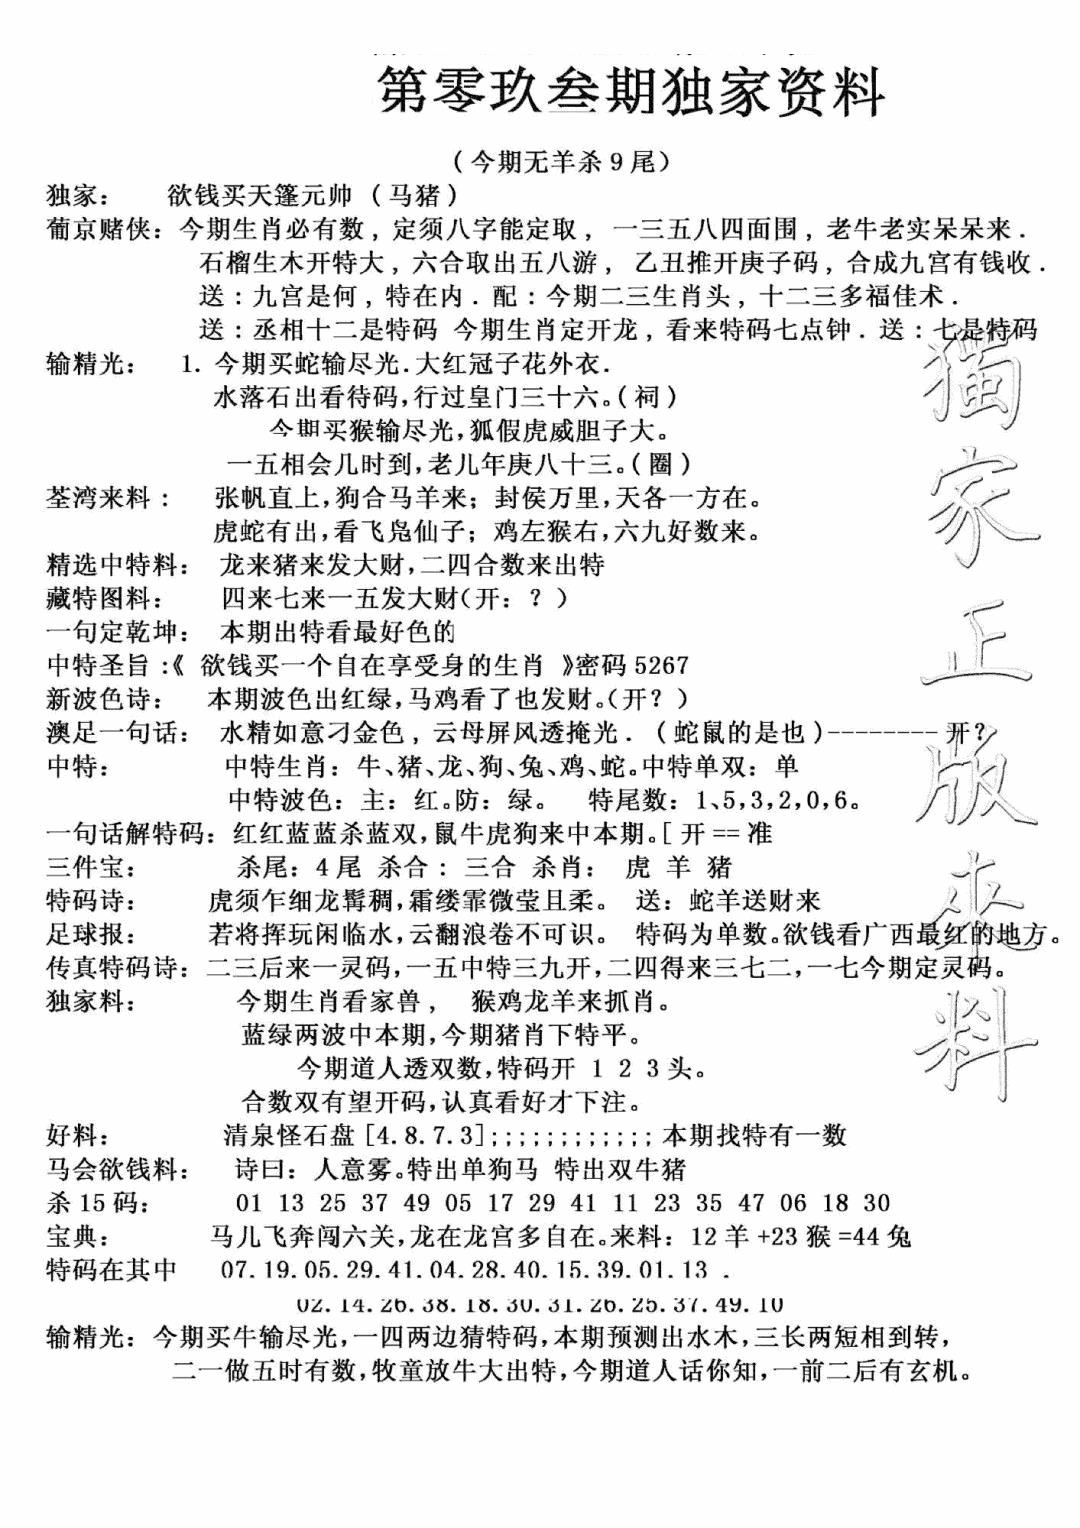 第零玖叁期独家资料
(今期无羊杀9尾)
独家: 欲钱买天篷元帅 (马猪)
葡京赌侠: 今期生肖必有数, 定须八字能定取, 一三五八四面围, 老牛老实呆呆来.
石榴生木开特大, 六合取出五八游, 乙丑推开庚子码, 合成九宫有钱收.
送:九宫是何, 特在内. 配:今期二三生肖头, 十二三多福佳术.
送:丞相十二是特码 今期生肖定开龙, 看来特码七点钟. 送:七是特码
输精光: 1. 今期买蛇输尽光.大红冠子花外衣.
水落石出看待码,行过皇门三十六。(祠)
今期买猴输尽光,狐假虎威胆子大。
一五相会几时到,老儿年庚八十三。(圈)
荃湾来料: 张帆直上,狗合马羊来; 封侯万里,天各一方在。
虎蛇有出,看飞凫仙子; 鸡左猴右,六九好数来。
精选中特料: 龙来猪来发大财,二四合数来出特
藏特图料: 四来七来一五发大财(开: ?)
一句定乾坤: 本期出特看最好色的
中特圣旨:《 欲钱买一个自在享受身的生肖 》密码5267
新波色诗: 本期波色出红绿,马鸡看了也发财。(开?)
澳足一句话: 水精如意刁金色, 云母屏风透掩光. (蛇鼠的是也)--------开?
中特: 中特生肖: 牛、猪、龙、狗、兔、鸡、蛇。中特单双: 单
中特波色: 主: 红。防: 绿。 特尾数: 1、5,3,2,0,6。
一句话解特码: 红红蓝蓝杀蓝双,鼠牛虎狗来中本期。[开==准
三件宝: 杀尾: 4尾 杀合: 三合 杀肖: 虎 羊 猪
特码诗: 虎须乍细龙髯稠,霜缕霏微莹且柔。 送: 蛇羊送财来
足球报: 若将挥玩闲临水,云翻浪卷不可识。 特码为单数。欲钱看广西最红的地方。
传真特码诗: 二三后来一灵码,一五中特三九开,二四得来三七二,一七今期定灵码。
独家料: 今期生肖看家兽, 猴鸡龙羊来抓肖。
蓝绿两波中本期,今期猪肖下特平。
今期道人透双数,特码开 1 2 3头。
合数双有望开码,认真看好才下注。
好料: 清泉怪石盘[4.8.7.3];;;;;;;;;;;;本期找特有一数
马会欲钱料: 诗曰: 人意雾。特出单狗马 特出双牛猪
杀15码: 01 13 25 37 49 05 17 29 41 11 23 35 47 06 18 30
宝典: 马儿飞奔闯六关,龙在龙宫多自在。来料: 12羊+23猴=44兔
特码在其中 07.19.05.29.41.04.28.40.15.39.01.13 .
02.14.26.38.18.30.31.26.25.37.49.10
输精光: 今期买牛输尽光,一四两边猜特码,本期预测出水木,三长两短相到转,
二一做五时有数,牧童放牛大出特,今期道人话你知,一前二后有玄机。
獨家正版來料